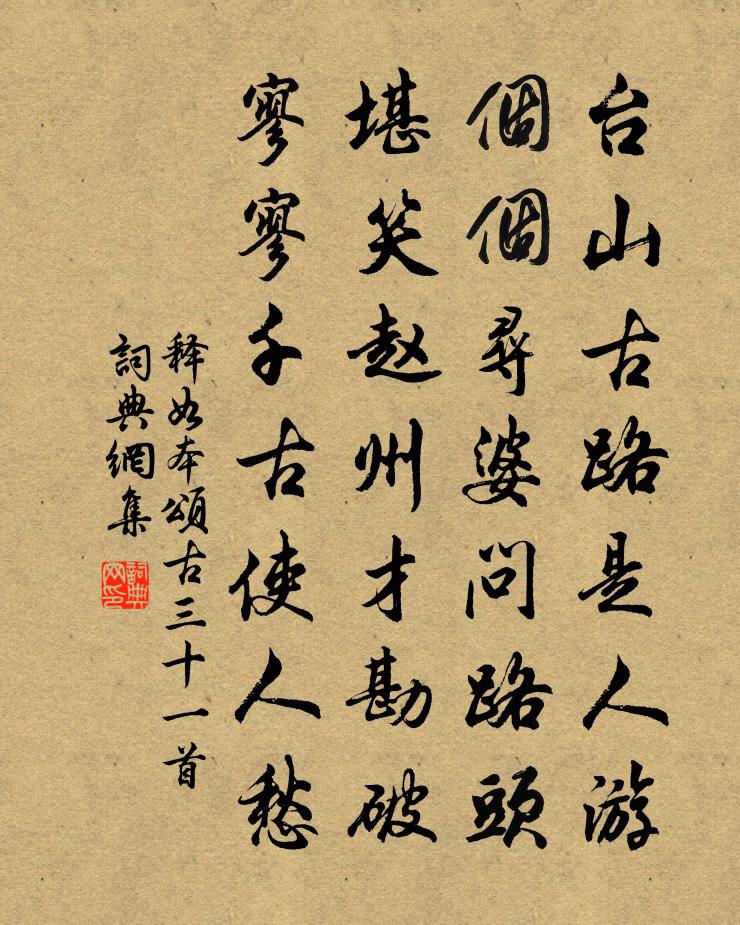 台山古路是人游
個個尋婆問路頭
堪笑赵州才勘破
寥寥千古使人愁
释如本頌古三十一首
詞典網集
詞典网印